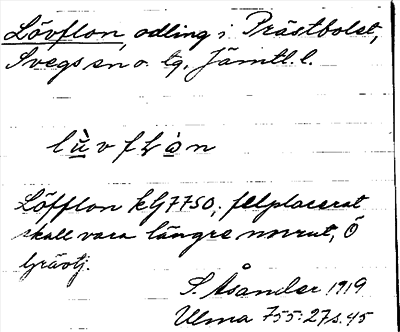 Lövflon, odling i Prästbolet,
Svegs sn o. tg, Jämtl. l.
lùvflòn
Löfflon kG7750; felplacerat
skall vara längre norrut, Ö
S. Åsander 1919
Ulma 755:27 s. 45